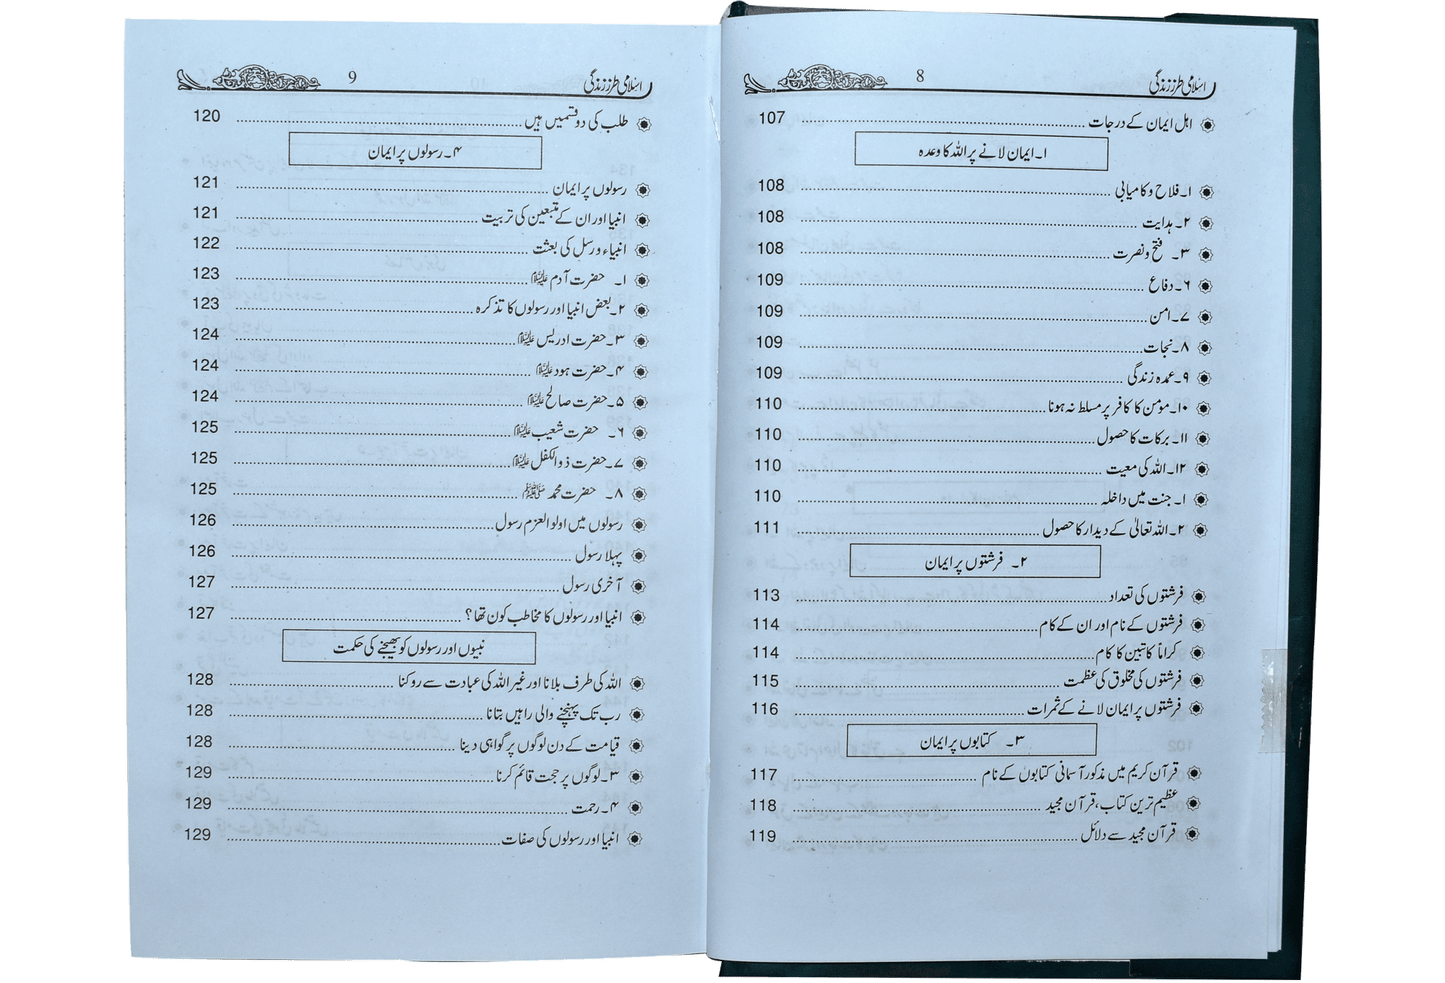 اسلامی طرز زندگی 8
اہل ایمان کے درجات 107
۱۔ ایمان لانے پر اللہ کا وعدہ
۱۔ فلاح و کامیابی 108
۲۔ ہدایت 108
۳۔ فتح و نصرت 108
۶۔ دفاع 109
۷۔ امن 109
۸۔ نجات 109
۹۔ عمدہ زندگی 109
۱۰۔ مومن کا کافر پر مسلط نہ ہونا 110
۱۱۔ برکات کا حصول 110
۱۲۔ اللہ کی معیت 110
۱۔ جنت میں داخلہ 110
۲۔ اللہ تعالیٰ کے دیدار کا حصول 111
۲۔ فرشتوں پر ایمان
فرشتوں کی تعداد 113
فرشتوں کے نام اور ان کے کام 114
کراماً کاتبین کا کام 114
فرشتوں کی مخلوق کی عظمت 115
فرشتوں پر ایمان لانے کے ثمرات 116
۳۔ کتابوں پر ایمان
قرآن کریم میں مذکور آسمانی کتابوں کے نام 117
عظیم ترین کتاب، قرآن مجید 118
قرآن مجید سے دلائل 119
اسلامی طرز زندگی 9
طلب کی دو قسمیں ہیں 120
۴۔ رسولوں پر ایمان
رسولوں پر ایمان 121
انبیا اور ان کے متبعین کی تربیت 121
انبیاء و رسل کی بعثت 122
۱۔ حضرت آدم علیہ السلام 123
۲۔ بعض انبیا اور رسولوں کا تذکرہ 123
۳۔ حضرت ادریس علیہ السلام 124
۴۔ حضرت ہود علیہ السلام 124
۵۔ حضرت صالح علیہ السلام 124
۶۔ حضرت شعیب علیہ السلام 125
۷۔ حضرت ذوالکفل علیہ السلام 125
۸۔ حضرت محمد ﷺ 125
رسولوں میں اولوالعزم رسول 126
پہلا رسول 126
آخری رسول 127
انبیا اور رسولوں کا مخاطب کون تھا؟ 127
نبیوں اور رسولوں کو بھیجنے کی حکمت
اللہ کی طرف بلانا اور غیر اللہ کی عبادت سے روکنا 128
رب تک پہنچنے والی راہیں بتانا 128
قیامت کے دن لوگوں پر گواہی دینا 128
۳۔ لوگوں پر حجت قائم کرنا 129
۴۔ رحمت 129
انبیا اور رسولوں کی صفات 129